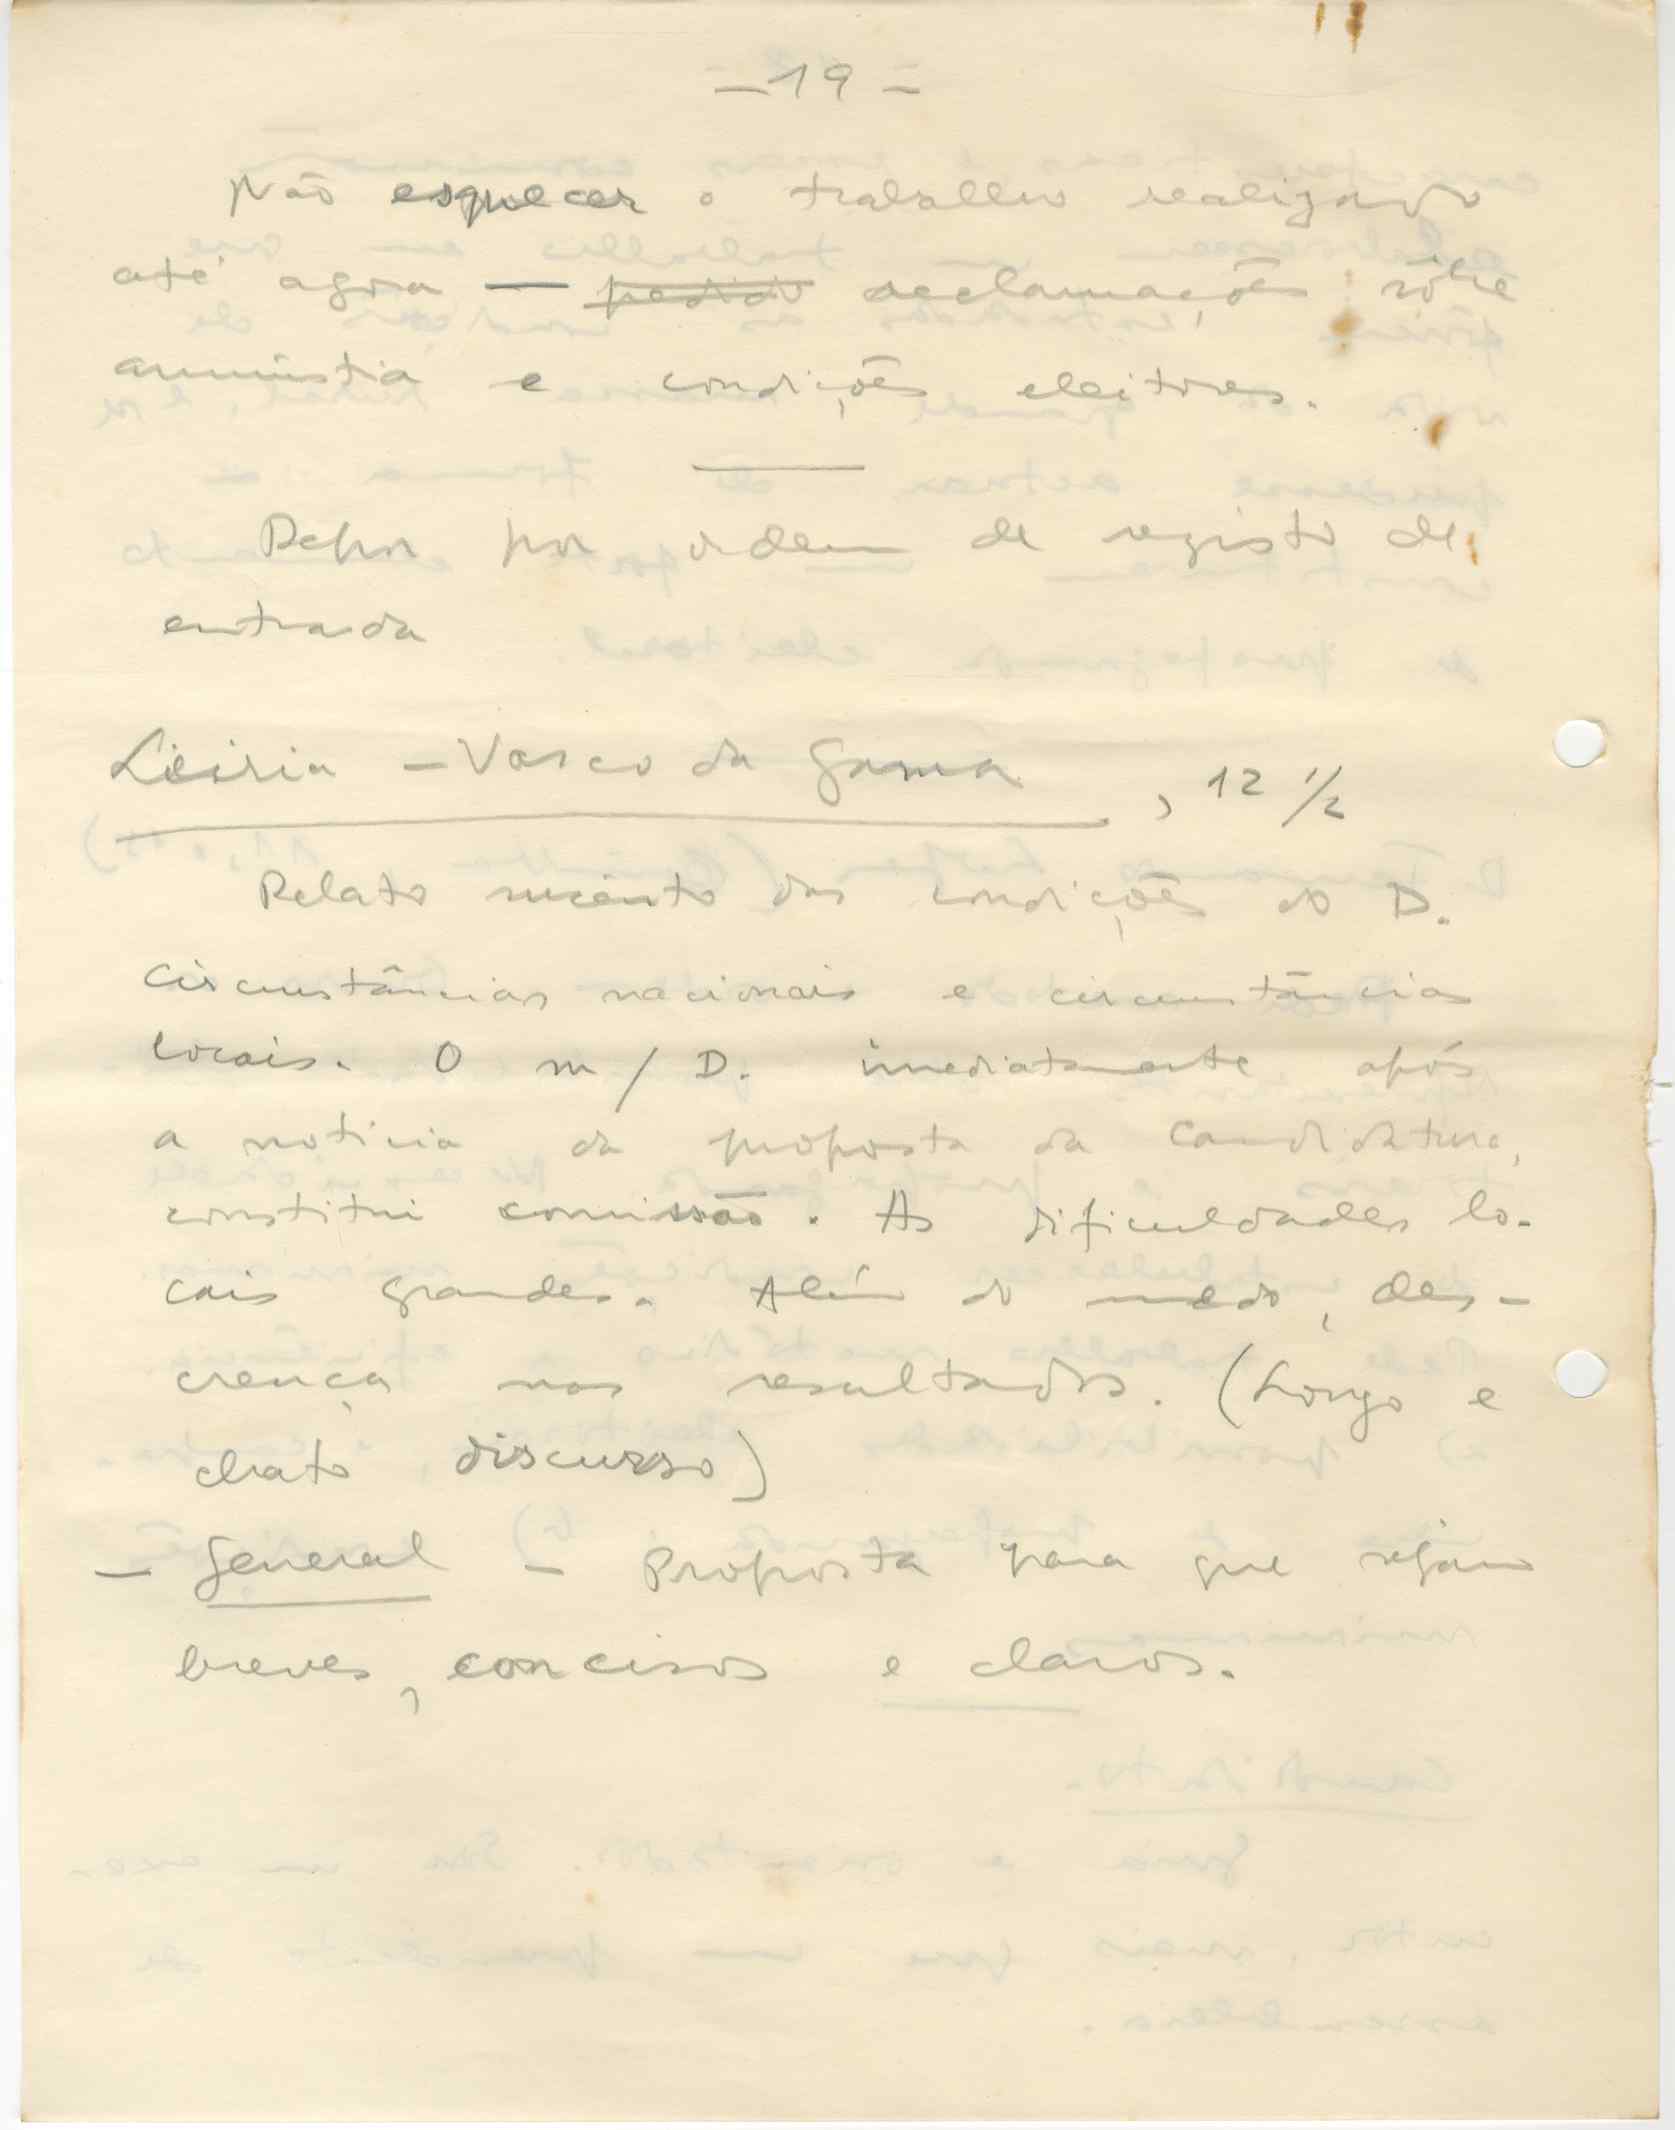 — 19 —
Não esquecer o trabalho realizado
até agora — pedido reclamações sôbre
amnistia e condições eleitores.
Depor por ordem de registo de
entrada
Leiria – Vasco da Gama, 12 1/2
Relato sucinto das condições do D.
Circunstâncias nacionais e circunstâncias
locais. O m/ D. imediatamente após
a notícia da proposta da Candidatura,
constitui comissão. As dificuldades lo-
cais grandes. Além do medo, des-
crença nos resultados. (Longo e
chato discurso)
– General – Proposta para que sejam
breves, concisos e claros.